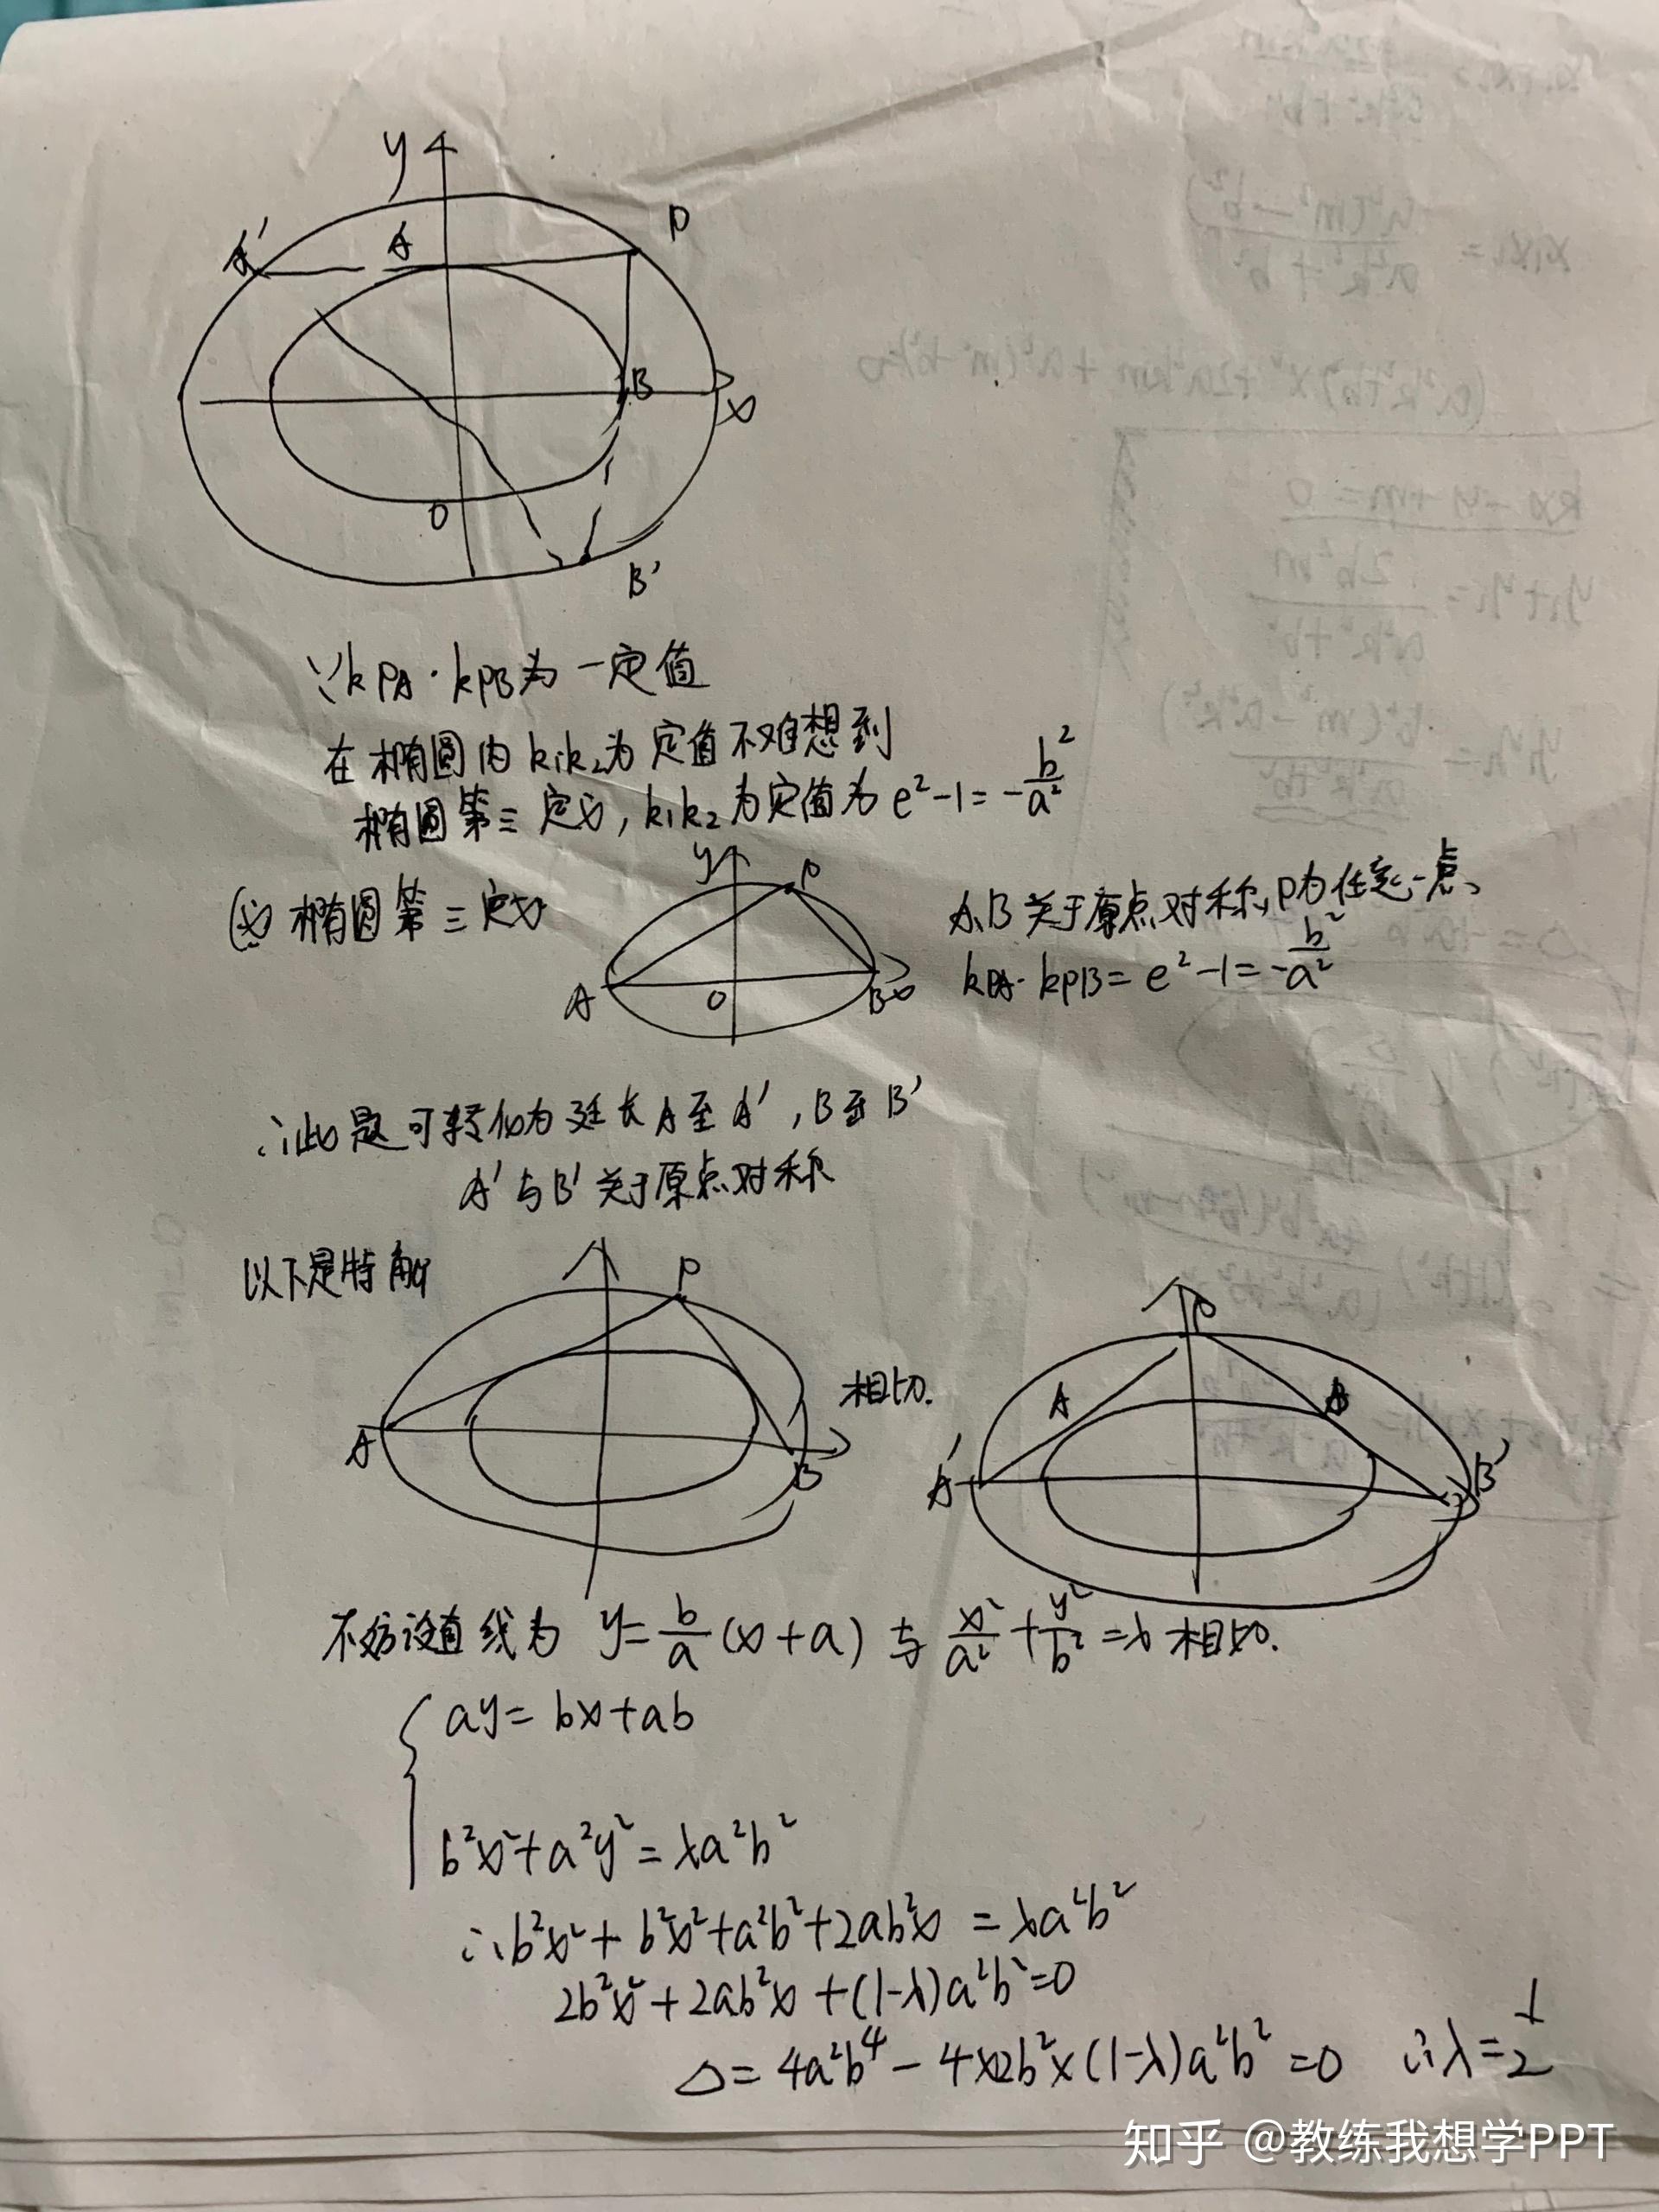 y
A'
A
P
B
x
O
B'
∵kPA·kPB为一定值
在椭圆内k₁k₂为定值不难想到
椭圆第三定义,k₁k₂为定值为e²-1=-b²/a²
(※)椭圆第三定义
y
P
A
O
B
x
A、B关于原点对称,P为任意一点、
kPA·kPB=e²-1=-b²/a²
∴此题可转化为延长A至A',B至B'
A'与B'关于原点对称
以下是特解
P
A
B
相切.
P
A
B
A'
B'
不妨设直线为 y=b/a(x+a)与x²/a²+y²/b²=λ相切.
{ay=bx+ab
b²x²+a²y²=λa²b²
∴b²x²+b²x²+a²b²+2ab²x=λa²b²
2b²x²+2ab²x+(1-λ)a²b²=0
Δ=4a²b⁴-4×2b²×(1-λ)a²b²=0 ∴λ=1/2
知乎 @教练我想学PPT